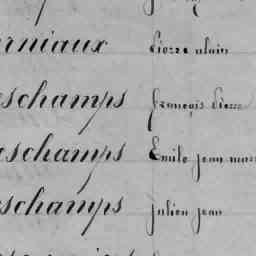 rniaux pierre alain
schamps françois pierre
schamps Emile jean mar
schamps julien jean